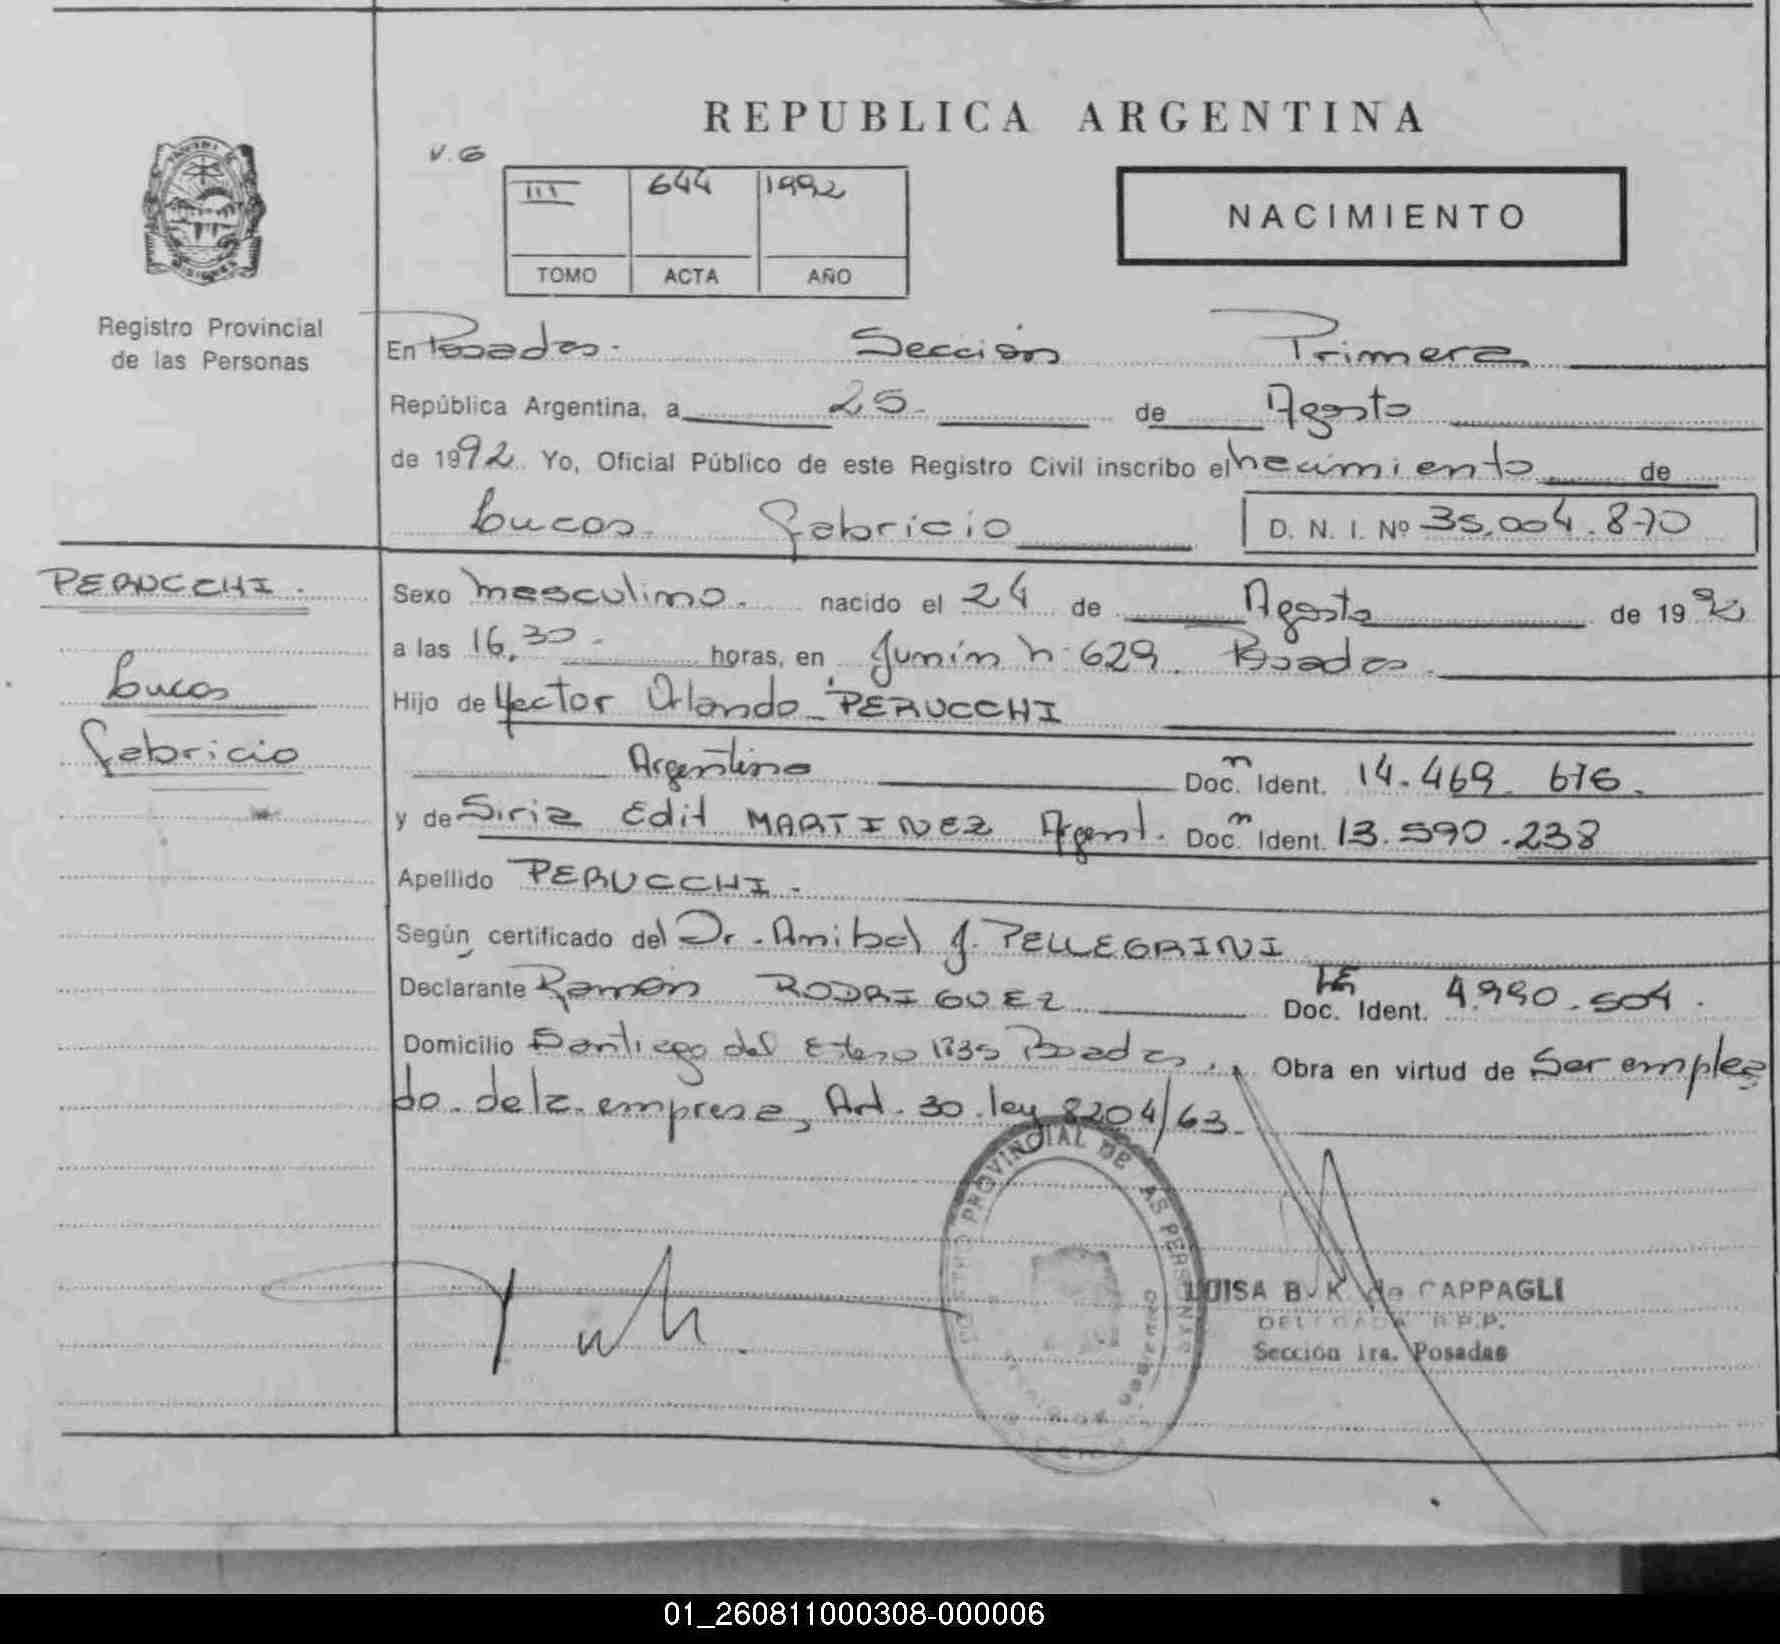 REPUBLICA ARGENTINA
V.G
III 644 1992
TOMO ACTA AÑO
NACIMIENTO
Registro Provincial
de las Personas
En Posadas. Sección Primera
República Argentina, a 25. de Agosto
de 1992. Yo, Oficial Público de este Registro Civil inscribo el nacimiento de
Lucas. Fabricio D. N. I. Nº 35.004.870
PERUCCHI.
Lucas
Fabricio
Sexo masculino. nacido el 24 de Agosto de 1992
a las 16,30. horas, en Junín n: 629. Posadas.
Hijo de Hector Orlando PERUCCHI
Argentino Doc. Ident. 14.469.676.
y de Edit MARTINEZ Argent. Doc. Ident. 13.590.238
Apellido PERUCCHI.
Según certificado del Dr. Anibal J. PELLEGRINI
Declarante Ramón RODRIGUEZ Doc. Ident. LE 4.990.504.
Domicilio Santiago del Estero 1335 Posadas. Obra en virtud de Ser emplea
do. de la. empresa, Art. 30. ley 8204/63.
PROVINCIAL DE LAS PERSONAS
LUISA B. K. de CAPPAGLI
DELEGADA R.P.P.
Sección 1ra. Posadas
01_260811000308-000006